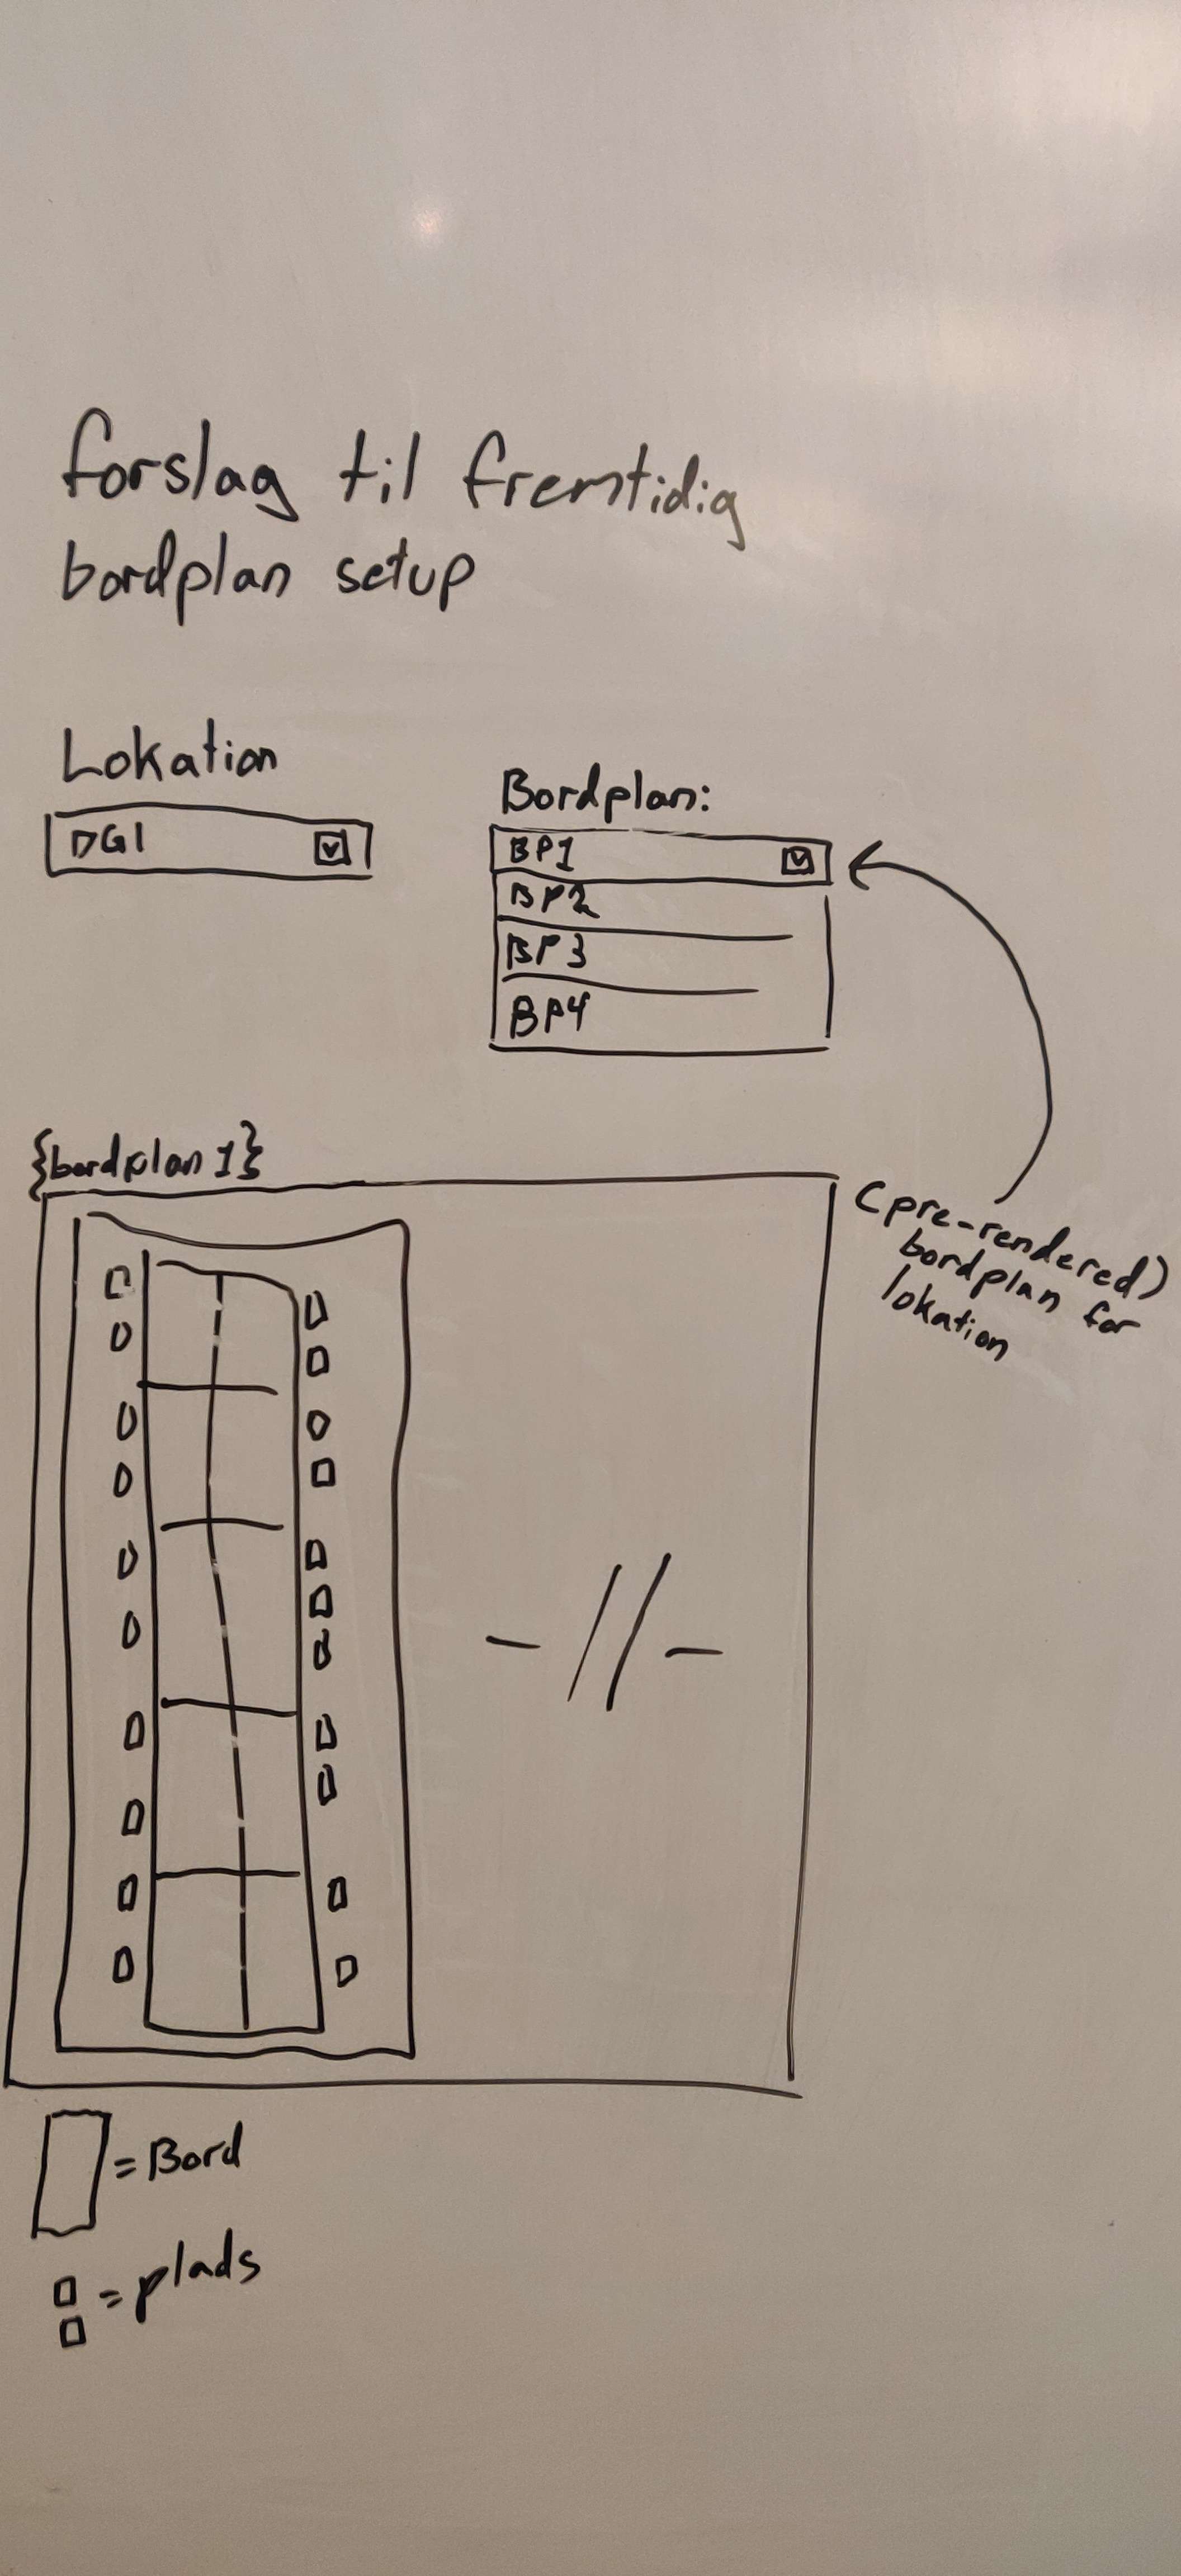 forslag til fremtidig
bordplan setup
Lokation
DGI
Bordplan:
BP1
BP2
BP3
BP4
{bordplan 1}
(pre-rendered)
bordplan for
lokation
-//-
= Bord
= plads